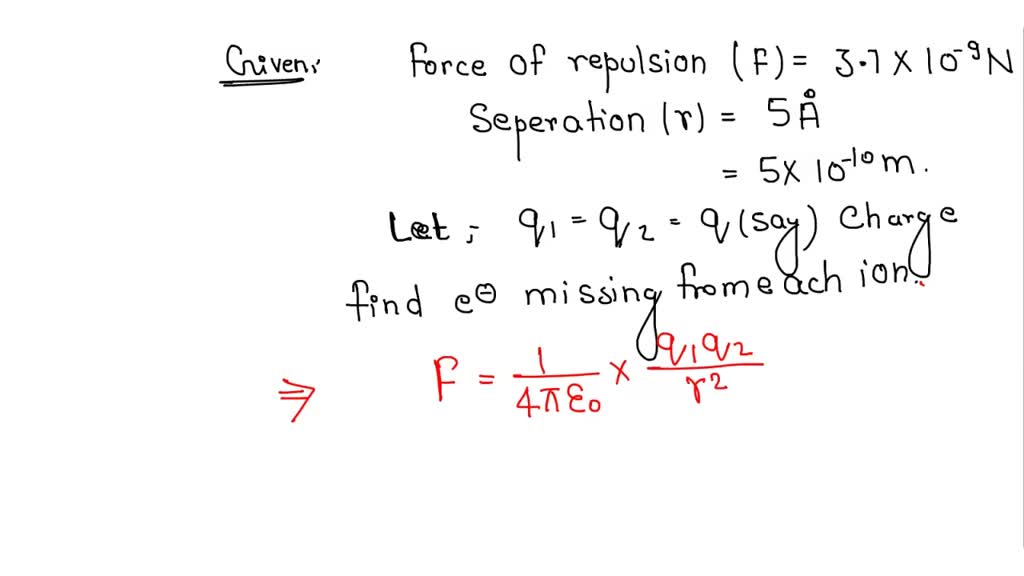 Given: Force of repulsion (F) = 3.7 X 10⁻⁹ N
Seperation (r) = 5 Å
= 5 X 10⁻¹⁰ m.
Let ; q₁ = q₂ = q (say) Charge
find e⊖ missing from each ion.
⇒ F = 1/4πε₀ × q₁q₂/r²